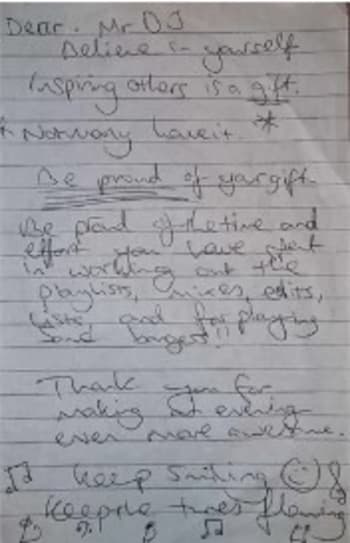 Dear. Mr DJ
Believe in yourself
Inspiring others is a gift.
* Not many have it. *
Be proud of your gift.
Be proud of the time and
effort you have spent
in working out the
playlists, mixes, edits,
and for playing
some bangers!!
Thank you for
making evening
even more awesome.
Keep smiling
Keep the tunes flowing